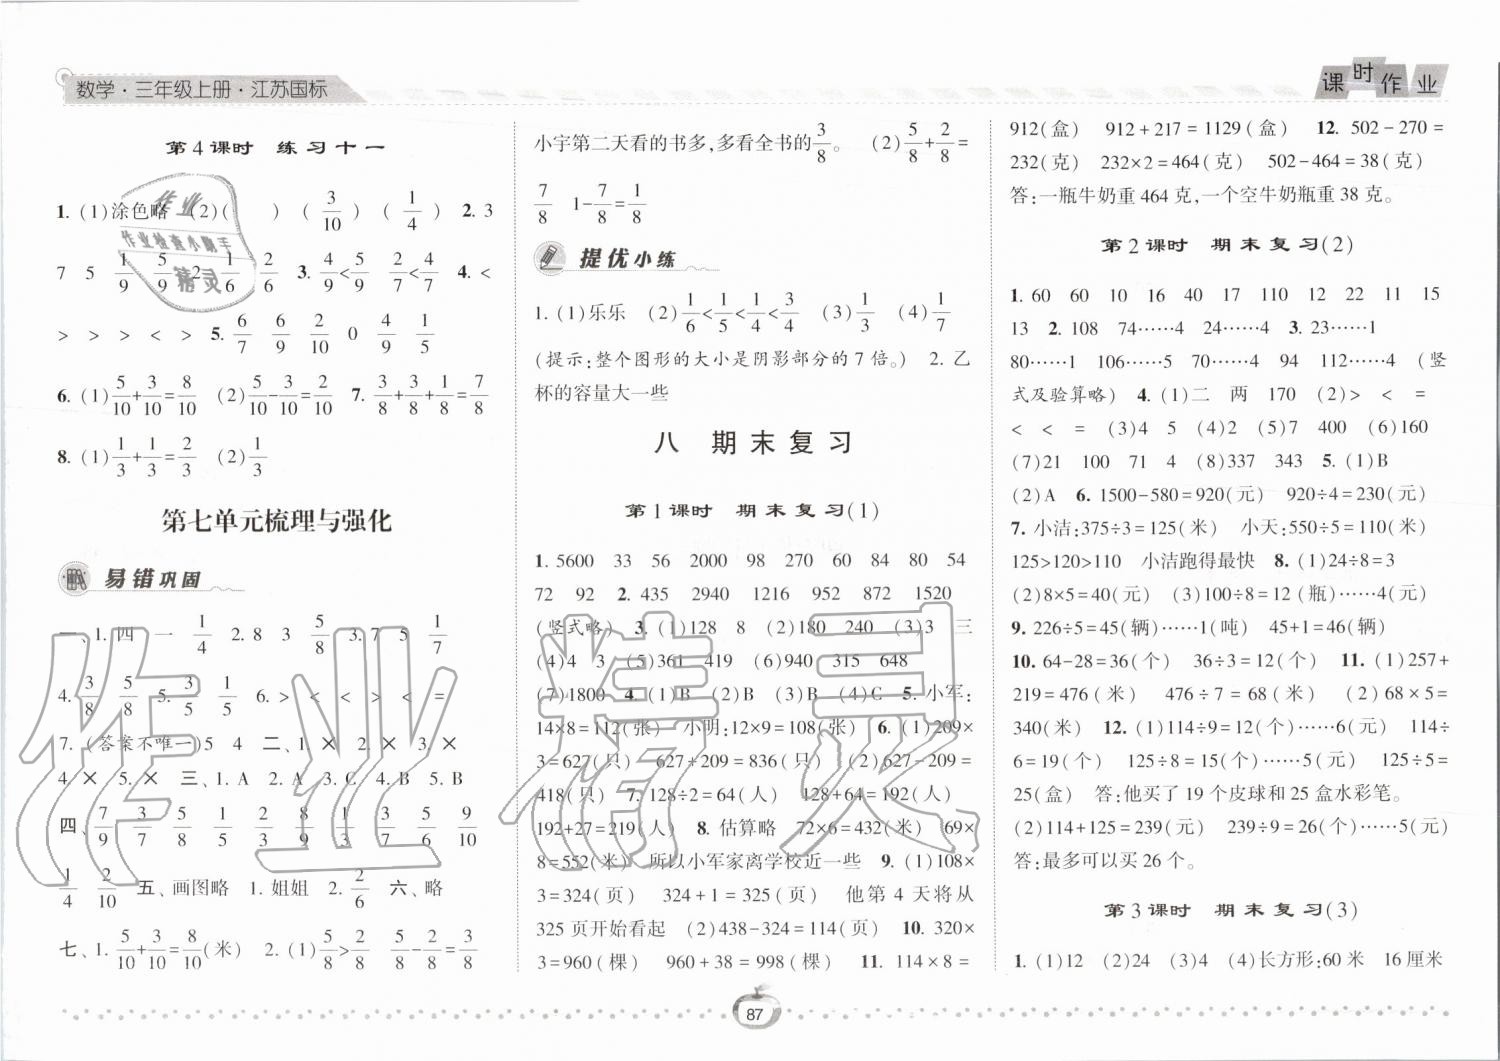 数学·三年级上册·江苏国标
课时作业
第4课时 练习十一
1. (1)涂色略 (2)( ) (3/10) (1/4) 2. 3
7 5 1/9 5/9 2 1/6 2/6 3. 4/9<5/9 2/7<4/7 4. <
> > > < > 5. 6/7 6/9 2/10 0 4/9 1/5
6. (1)5/10+3/10=8/10 (2)5/10-3/10=2/10 7. 3/8+3/8+1/8=7/8
8. (1)1/3+1/3=2/3 (2)1/3
第七单元梳理与强化
易错巩固
一、1. 四 一 1/4 2. 8 3 5/8 3. 7 5 1/7
4. 3/8 5/8 5. 3/5 1/5 6. > < < > < =
7. (答案不唯一)5 4 二、1. × 2. × 3. ×
4. × 5. × 三、1. A 2. A 3. C 4. B 5. B
四、7/9 3/7 5/8 1/5 2/3 8/9 1/3 3/7 5/6 9/10
1/4 2/10 五、画图略 1. 姐姐 2. 2/6 六、略
七、1. 5/10+3/10=8/10(米) 2. (1)5/8>2/8 5/8-2/8=3/8
小宇第二天看的书多,多看全书的3/8。 (2)5/8+2/8=
7/8 1-7/8=1/8
提优小练
1. (1)乐乐 (2)1/6<1/5<1/4<3/4 (3)1/3 (4)1/7
(提示:整个图形的大小是阴影部分的7倍。) 2. 乙
杯的容量大一些
八 期末复习
第1课时 期末复习(1)
1. 5600 33 56 2000 98 270 60 84 80 54
72 92 2. 435 2940 1216 952 872 1520
(竖式略) 3. (1)128 8 (2)180 240 (3)3 三
(4)4 3 (5)361 419 (6)940 315 648
(7)1800 4. (1)B (2)B (3)B (4)C 5. 小军:
14×8=112(张) 小明:12×9=108(张) 6. (1)209×
3=627(只) 627+209=836(只) (2)627-209=
418(只) 7. 128÷2=64(人) 128+64=192(人)
192+27=219(人) 8. 估算略 72×6=432(米) 69×
8=552(米) 所以小军家离学校近一些 9. (1)108×
3=324(页) 324+1=325(页) 他第4天将从
325页开始看起 (2)438-324=114(页) 10. 320×
3=960(棵) 960+38=998(棵) 11. 114×8=
912(盒) 912+217=1129(盒) 12. 502-270=
232(克) 232×2=464(克) 502-464=38(克)
答:一瓶牛奶重464克,一个空牛奶瓶重38克。
第2课时 期末复习(2)
1. 60 60 10 16 40 17 110 12 22 11 15
13 2. 108 74……4 24……4 3. 23……1
80……1 106……5 70……4 94 112……4 (竖
式及验算略) 4. (1)二 两 170 (2)> < =
< < = (3)4 5 (4)2 (5)7 400 (6)160
(7)21 100 71 4 (8)337 343 5. (1)B
(2)A 6. 1500-580=920(元) 920÷4=230(元)
7. 小洁:375÷3=125(米) 小天:550÷5=110(米)
125>120>110 小洁跑得最快 8. (1)24÷8=3
(2)8×5=40(元) (3)100÷8=12(瓶)……4(元)
9. 226÷5=45(辆)……1(吨) 45+1=46(辆)
10. 64-28=36(个) 36÷3=12(个) 11. (1)257+
219=476(米) 476÷7=68(米) (2)68×5=
340(米) 12. (1)114÷9=12(个)……6(元) 114÷
6=19(个) 125÷8=15(个)……5(元) 125÷5=
25(盒) 答:他买了19个皮球和25盒水彩笔。
(2)114+125=239(元) 239÷9=26(个)……5(元)
答:最多可以买26个。
第3课时 期末复习(3)
1. (1)12 (2)24 (3)4 (4)长方形:60米 16厘米
87
作业
作业检查小助手
精灵
作业精灵